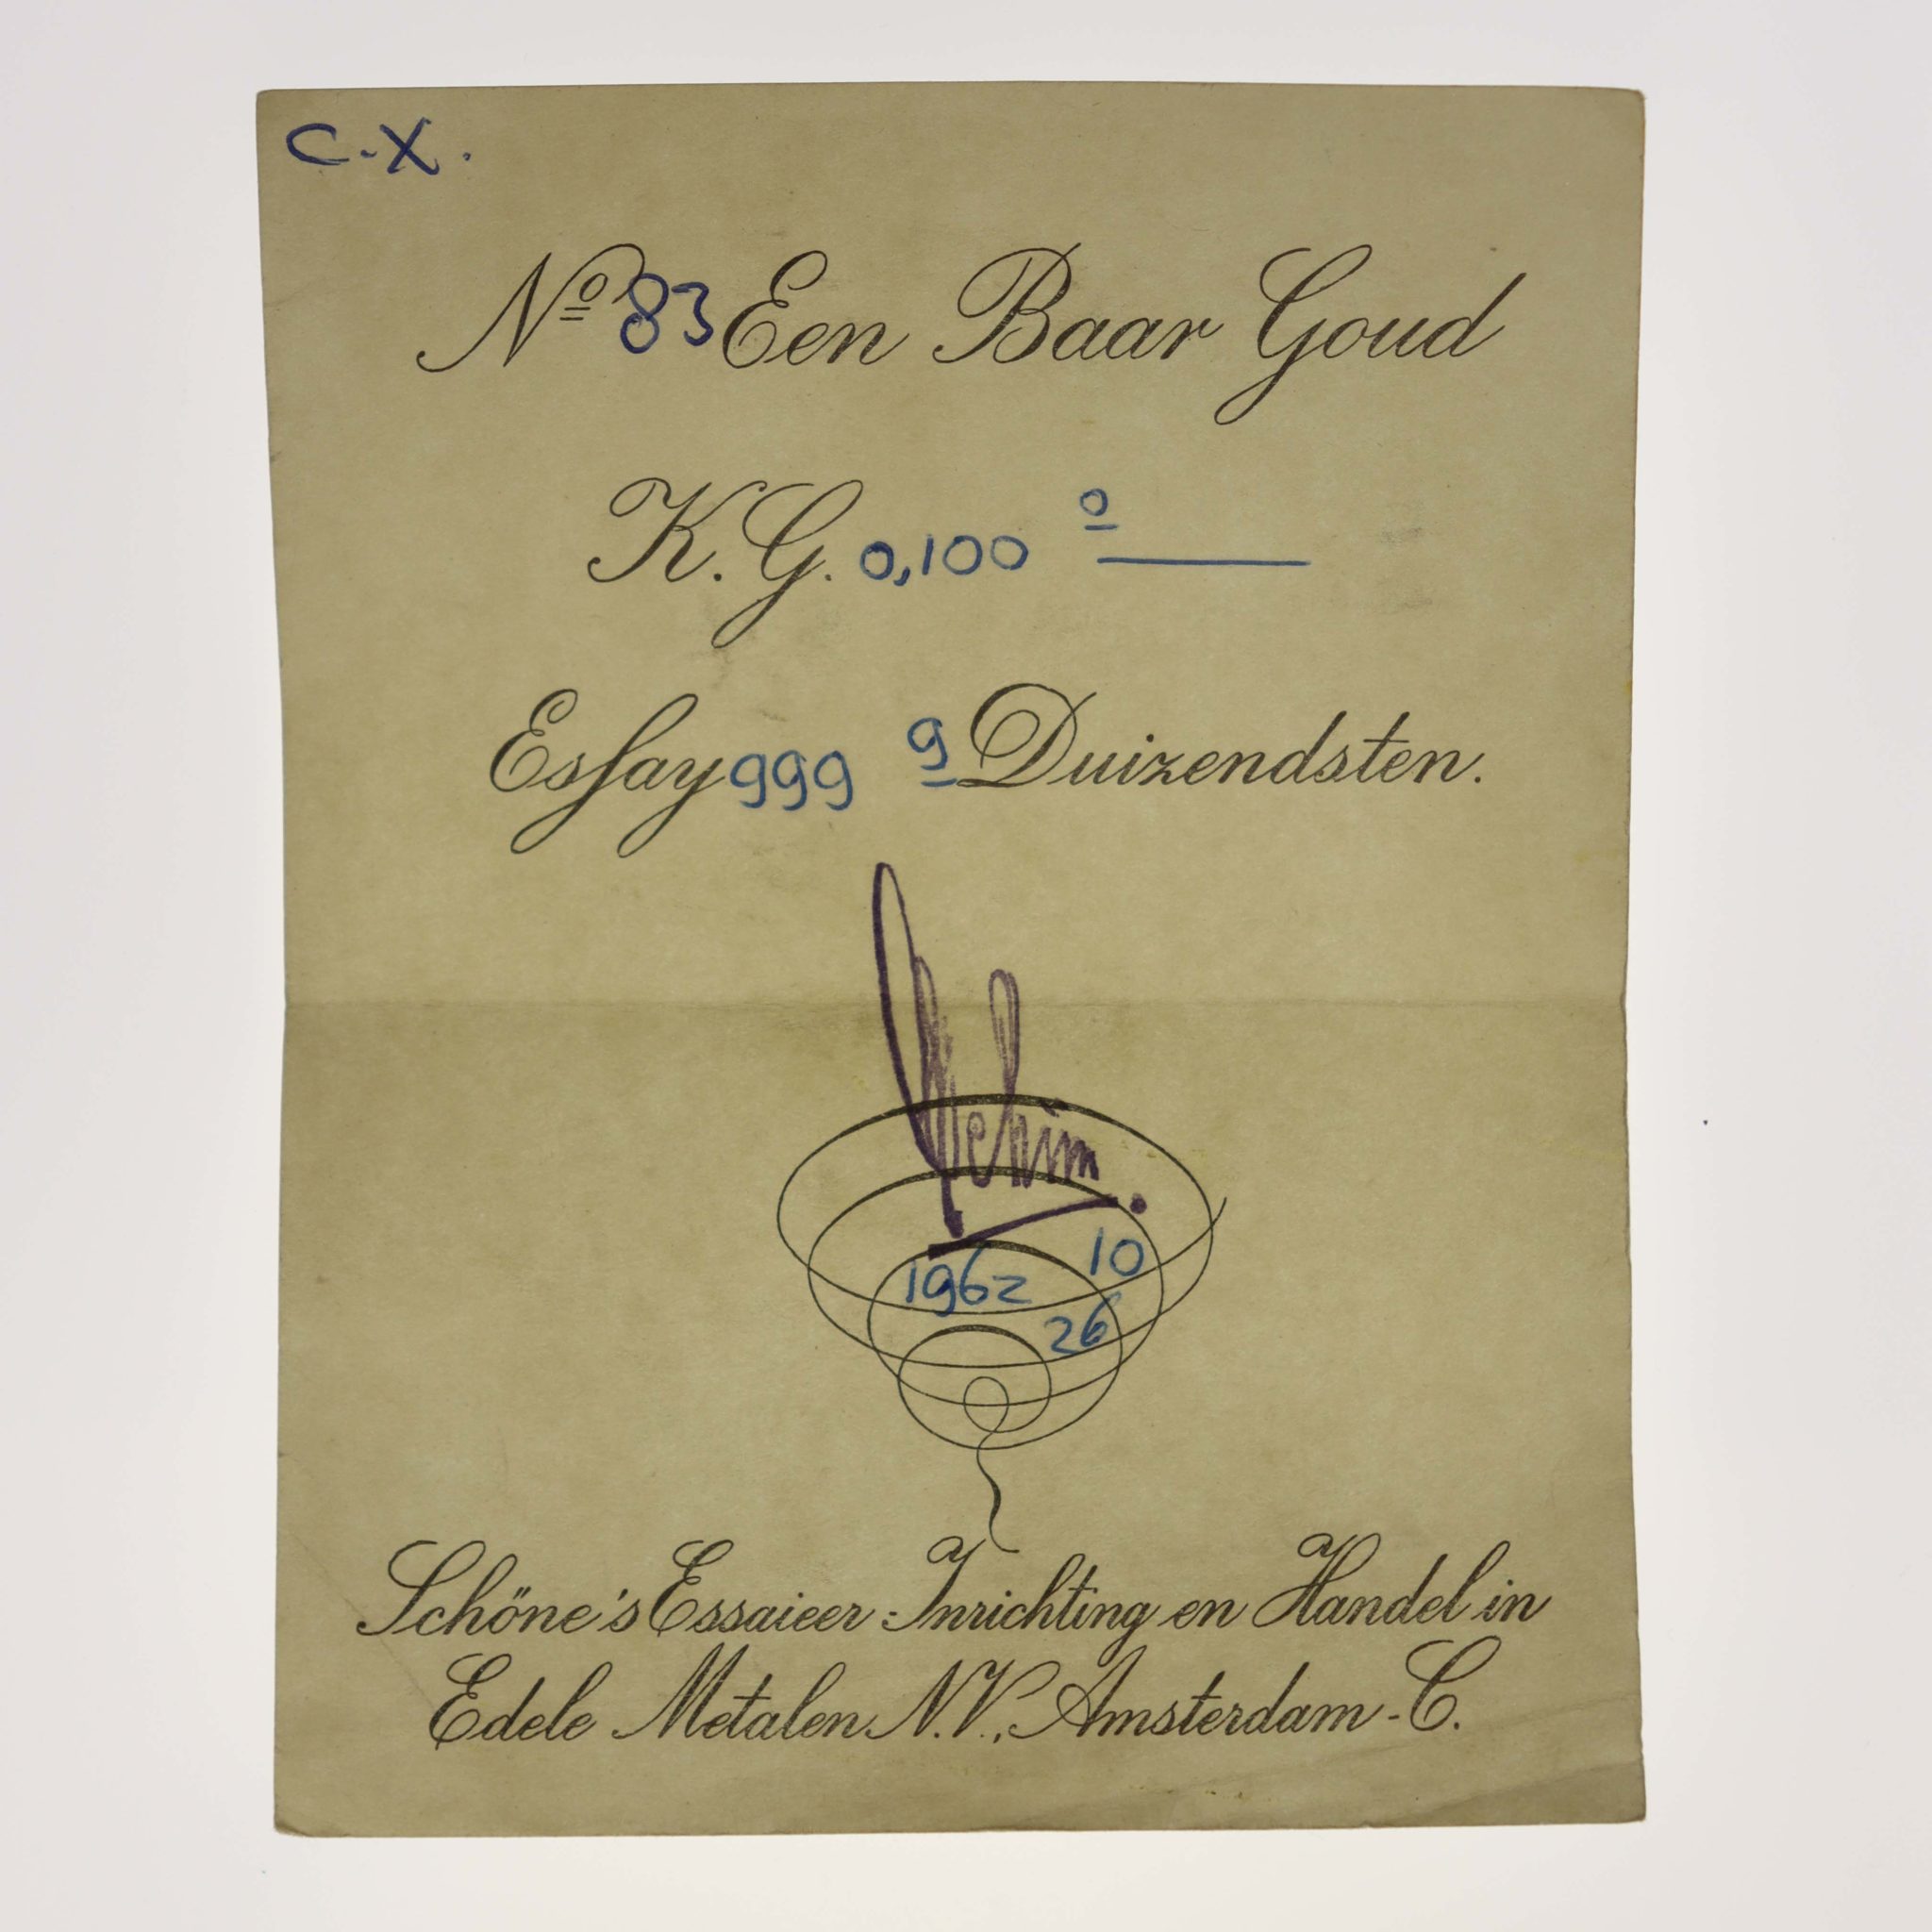 C.X.
Nº 83 Een Baar Goud
K.G. 0,100 º
Essay 999 9 Duizendsten.
1962 10
26
Schöne's Essaieer-Inrichting en Handel in
Edele Metalen N.V., Amsterdam-C.